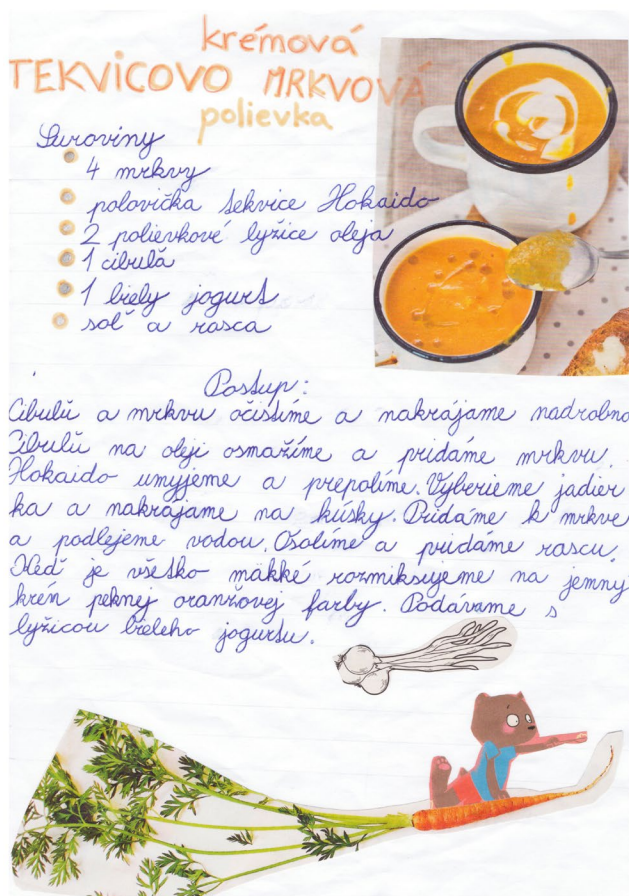 krémová
TEKVICOVO MRKVOVÁ
polievka
Suroviny
4 mrkvy
polovička tekvice Hokaido
2 polievkové lyžice oleja
1 cibuľa
1 biely jogurt
soľ a rasca
Postup:
Cibuľu a mrkvu očistíme a nakrájame nadrobno
Cibuľu na oleji osmažíme a pridáme mrkvu.
Hokaido umyjeme a prepolíme. Vyberieme jadier
ka a nakrájame na kúsky. Pridáme k mrkve
a podlejeme vodou. Osolíme a pridáme rascu.
Keď je všetko mäkké rozmiksujeme na jemný
krém peknej oranžovej farby. Podávame s
lyžicou bieleho jogurtu.